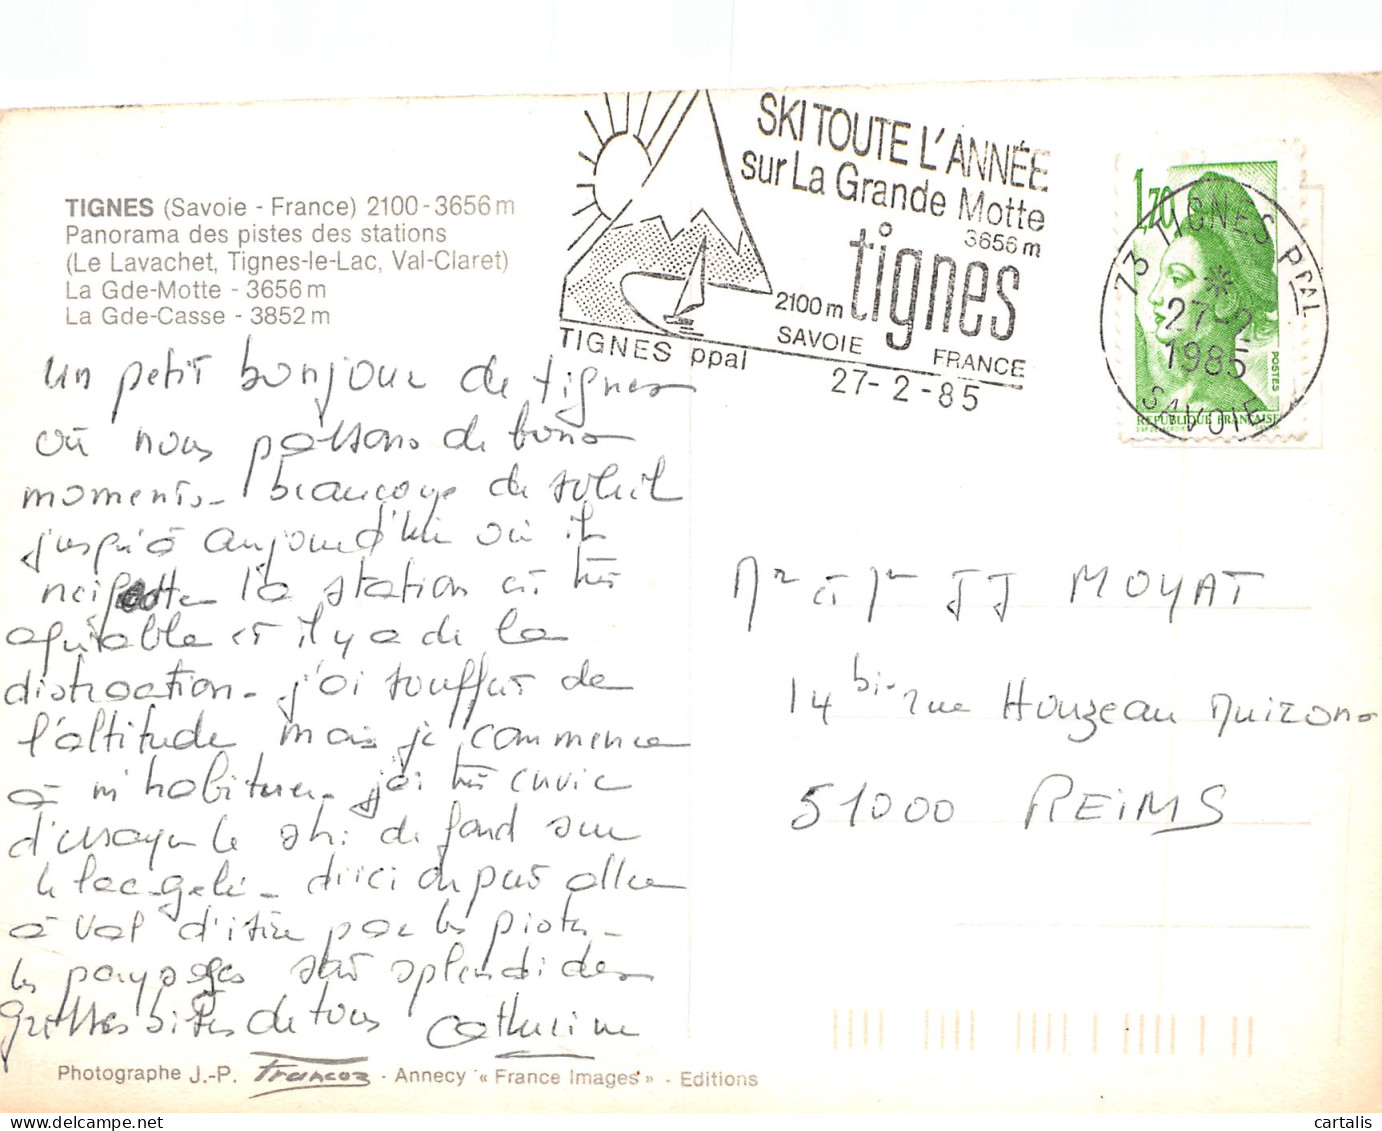 SKI TOUTE L'ANNÉE
sur La Grande Motte
3656 m
tignes
2100 m
SAVOIE FRANCE
TIGNES ppal
27-2-85
1,70
POSTES
REPUBLIQUE FRANÇAISE
73 TIGNES PPAL
27-2
1985
SAVOIE
TIGNES (Savoie - France) 2100 - 3656 m
Panorama des pistes des stations
(Le Lavachet, Tignes-le-Lac, Val-Claret)
La Gde-Motte - 3656 m
La Gde-Casse - 3852 m
un petit bonjour de tignes
où nous passons de bons
moments. beaucoup de soleil
jusqu'à aujourd'hui où il
neige la station est très
agréable et il y a de la
distraction. j'ai souffert de
l'altitude mais je commence
à m'habituer. j'ai très envie
d'essayer le ski de fond sur
le lac gelé. d'ici on peut aller
à Val d'isère par les pistes.
les paysages sont splendides
grosses bises de tous Catherine
Mr et Me JJ MOYAT
14 bis rue Houzeau Muiron
51000 REIMS
Photographe J.-P. Francoz - Annecy « France Images » - Editions
cartalis